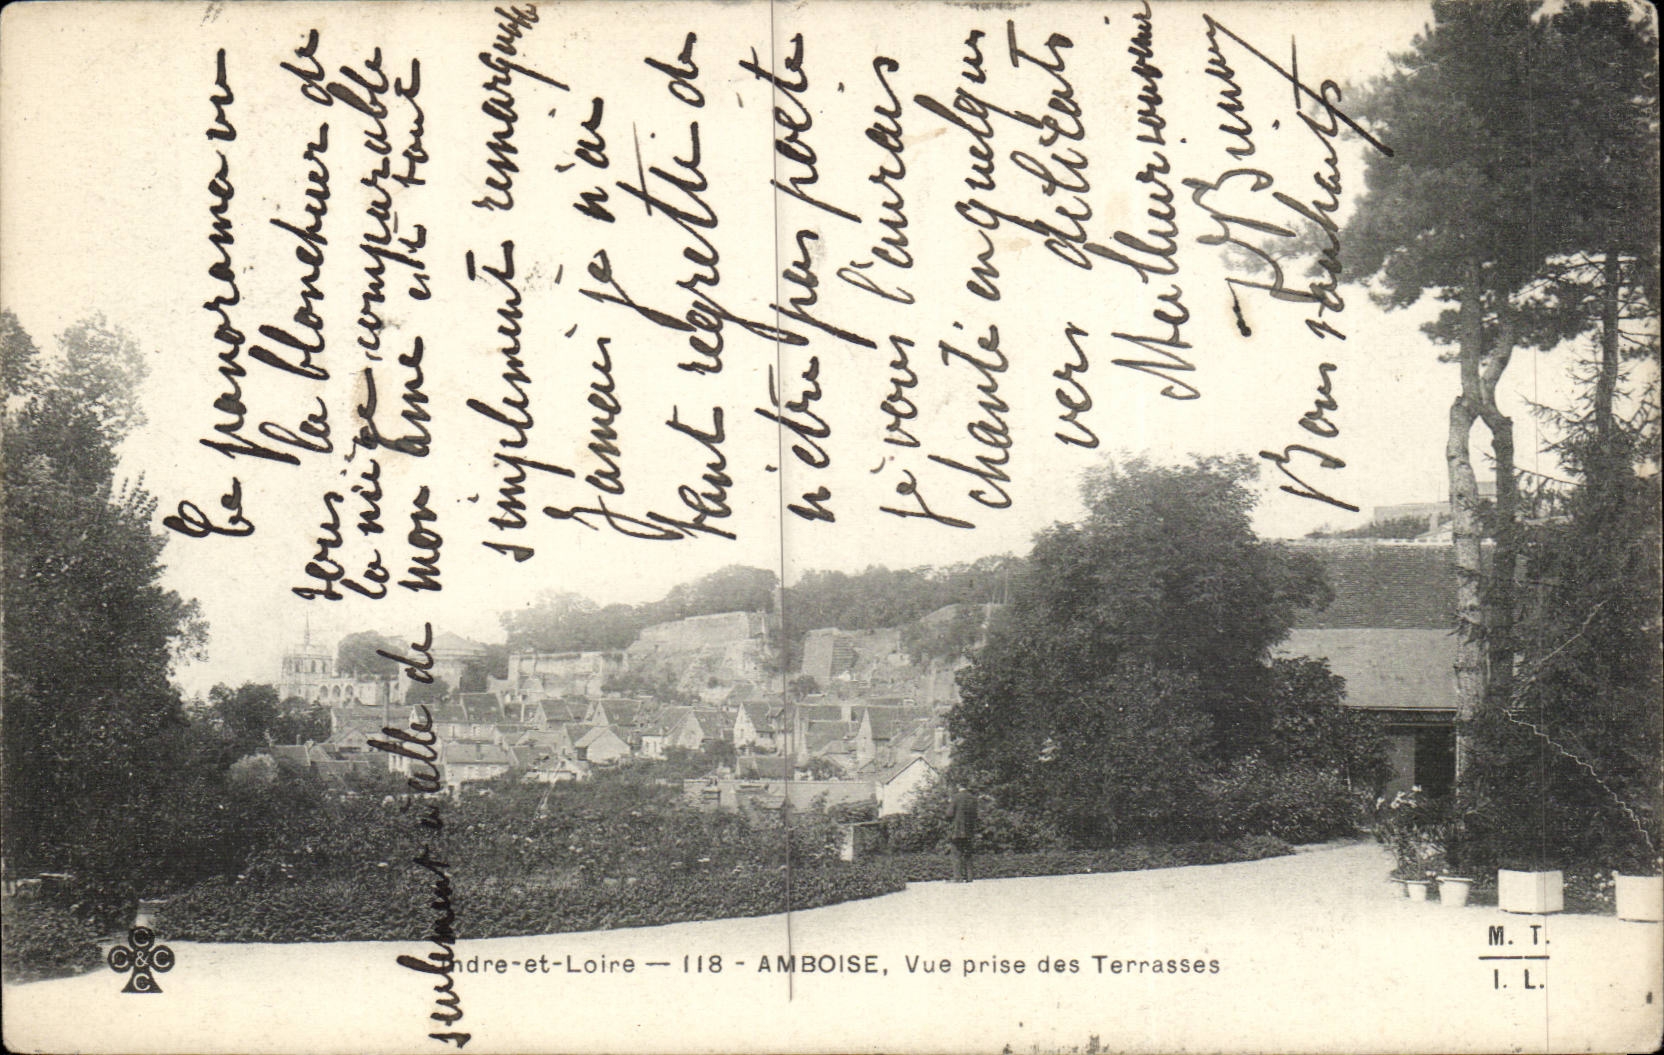 Ce panorama vu
sous la blancheur de
la neige, comparable
seulement à celle de mon âme est tout
simplement remarquable
Jamais je n'ai
tant regretté de
n'être pas poète
je vous l'aurais
chanté en quelques
vers délicats
Meilleur souvenir
Bons souhaits
Indre-et-Loire — 118 - AMBOISE, Vue prise des Terrasses
M. T.
I. L.
C C & C C